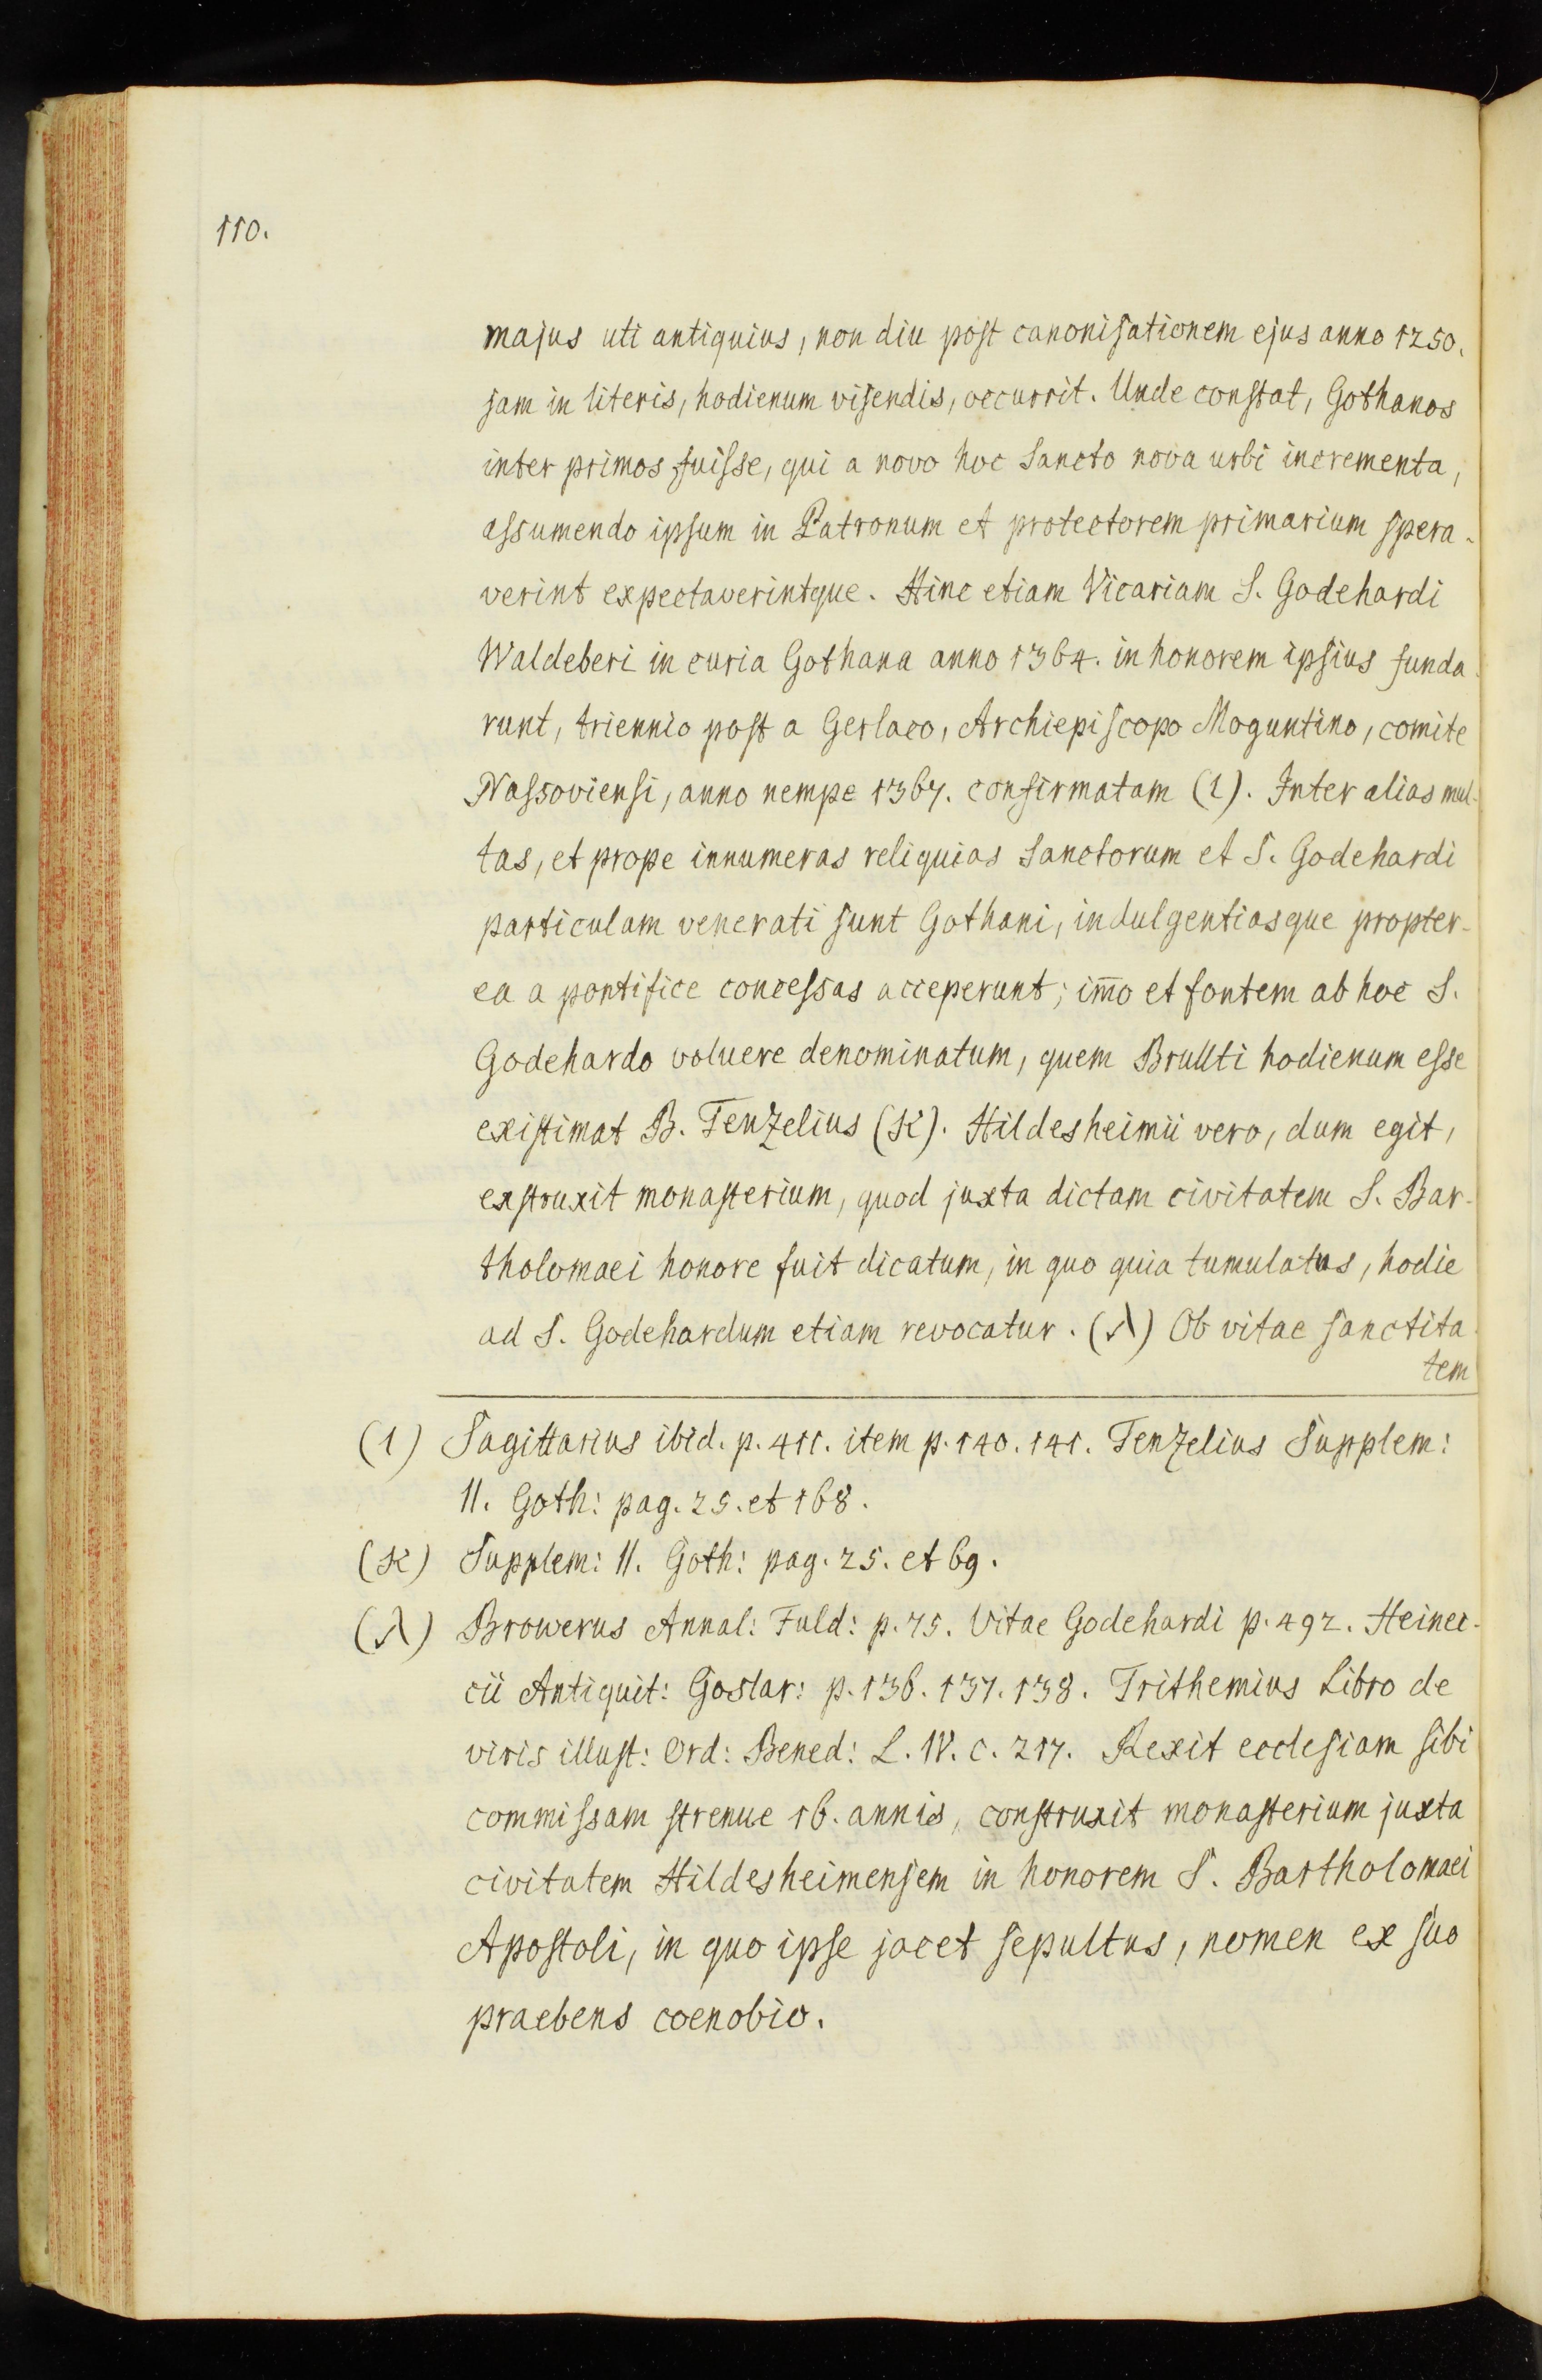 110.
majus uti antiquius, non diu post canonisationem ejus anno 1250.
jam in literis, hodienum visendis, occurrit. Unde constat, Gothanos
inter primos fuisse, qui a novo hoc Sancto nova urbi incrementa,
assumendo ipsum in Patronum et protectorem primarium spera-
verint expectaverintque. Hinc etiam Vicariam S. Godehardi
Waldeberi in curia Gothana anno 1364. in honorem ipsius funda-
runt, triennio post a Gerlaco, Archiepiscopo Moguntino, comite
Nassoviensi, anno nempe 1367. confirmatam (ι). Inter alias mul-
tas, et prope innumeras reliquias Sanctorum et S. Godehardi
particulam venerati sunt Gothani, indulgentiasque propter-
ea a pontifice concessas acceperunt; im̅o et fontem ab hoc S.
Godehardo voluere denominatum, quem Brullti hodienum esse
existimat B. Tenzelius (κ). Hildesheimii vero, dum egit,
exstruxit monasterium, quod juxta dictam civitatem S. Bar-
tholomaei honore fuit dicatum, in quo quia tumulatus, hodie
ad S. Godehardum etiam revocatur. (λ) Ob vitae sanctita-
tem
(ι) Sagittarius ibid. p. 411. item p. 140. 141. Tenzelius Supplem:
II. Goth: pag. 25. et 168.
(κ) Supplem: II. Goth: pag. 25. et 69.
(λ) Browerus Annal: Fuld: p. 75. Vitae Godehardi p. 492. Heinec-
cii Antiquit: Goslar: p. 136. 137. 138. Trithemius Libro de
viris illust: Ord: Bened: L. IV. c. 217. Rexit ecclesiam sibi
commissam strenue 16. annis, construxit monasterium juxta
civitatem Hildesheimensem in honorem S. Bartholomaei
Apostoli, in quo ipse jacet sepultus, nomen ex suo
praebens coenobio.